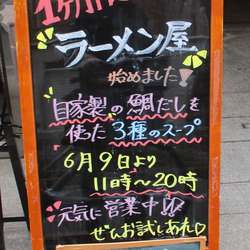 ラーメン屋
始めました!
自家製の鯛だしを
使った3種のスープ
6月9日より
11時〜20時
元気に営業中!!
ぜんお試しあれ